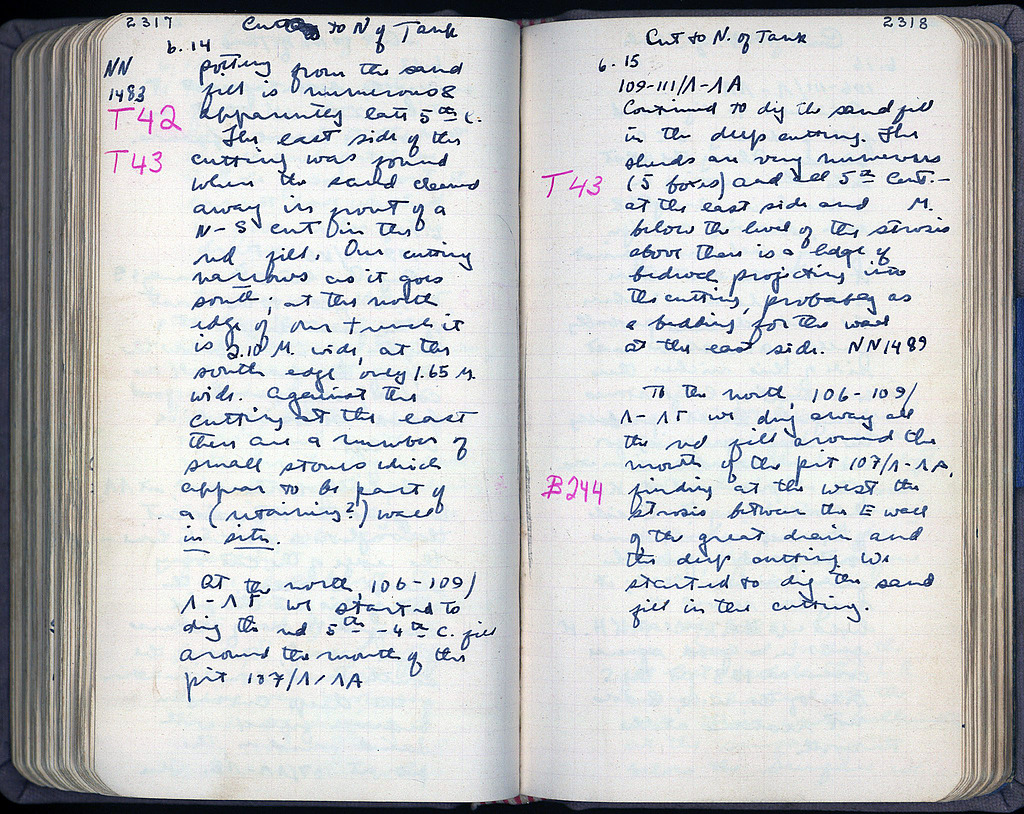 2317
Cut to N of Tank
6.14
NN
1483
T42
T43
pottery from the sand
fill is numerous &
apparently late 5th C.
The east side of the
cutting was found
when the sand cleaned
away in front of a
N-S cut in the
red fill. Our cutting
narrows as it goes
south; at the north
edge of our trench it
is 2.10 M. wide, at the
south edge, only 1.65 M.
wide. Against the
cutting at the east
there are a number of
small stones which
appear to be part of
a (retaining?) wall
in situ.
At the north, 106-109/
Λ-ΛΓ we started to
dig the red 5th-4th C. fill
around the mouth of the
pit 107/Λ-ΛΑ
2318
Cut to N. of Tank
6.15
109-111/Λ-ΛΑ
Continued to dig the sand fill
in the deep cutting. The
sherds are very numerous
T43
(5 boxes) and all 5th Cent. –
at the east side and M.
below the level of the strosis
above there is a ledge of
bedrock projecting into
the cutting, probably as
a bedding for the wall
at the east side. NN1489
To the north, 106-109/
Λ-ΛΓ we dug away all
the red fill around the
mouth of the pit 107/Λ-ΛΑ,
B244
finding at the west the
strosis between the E wall
of the great drain and
the deep cutting. We
started to dig the sand
fill in the cutting.